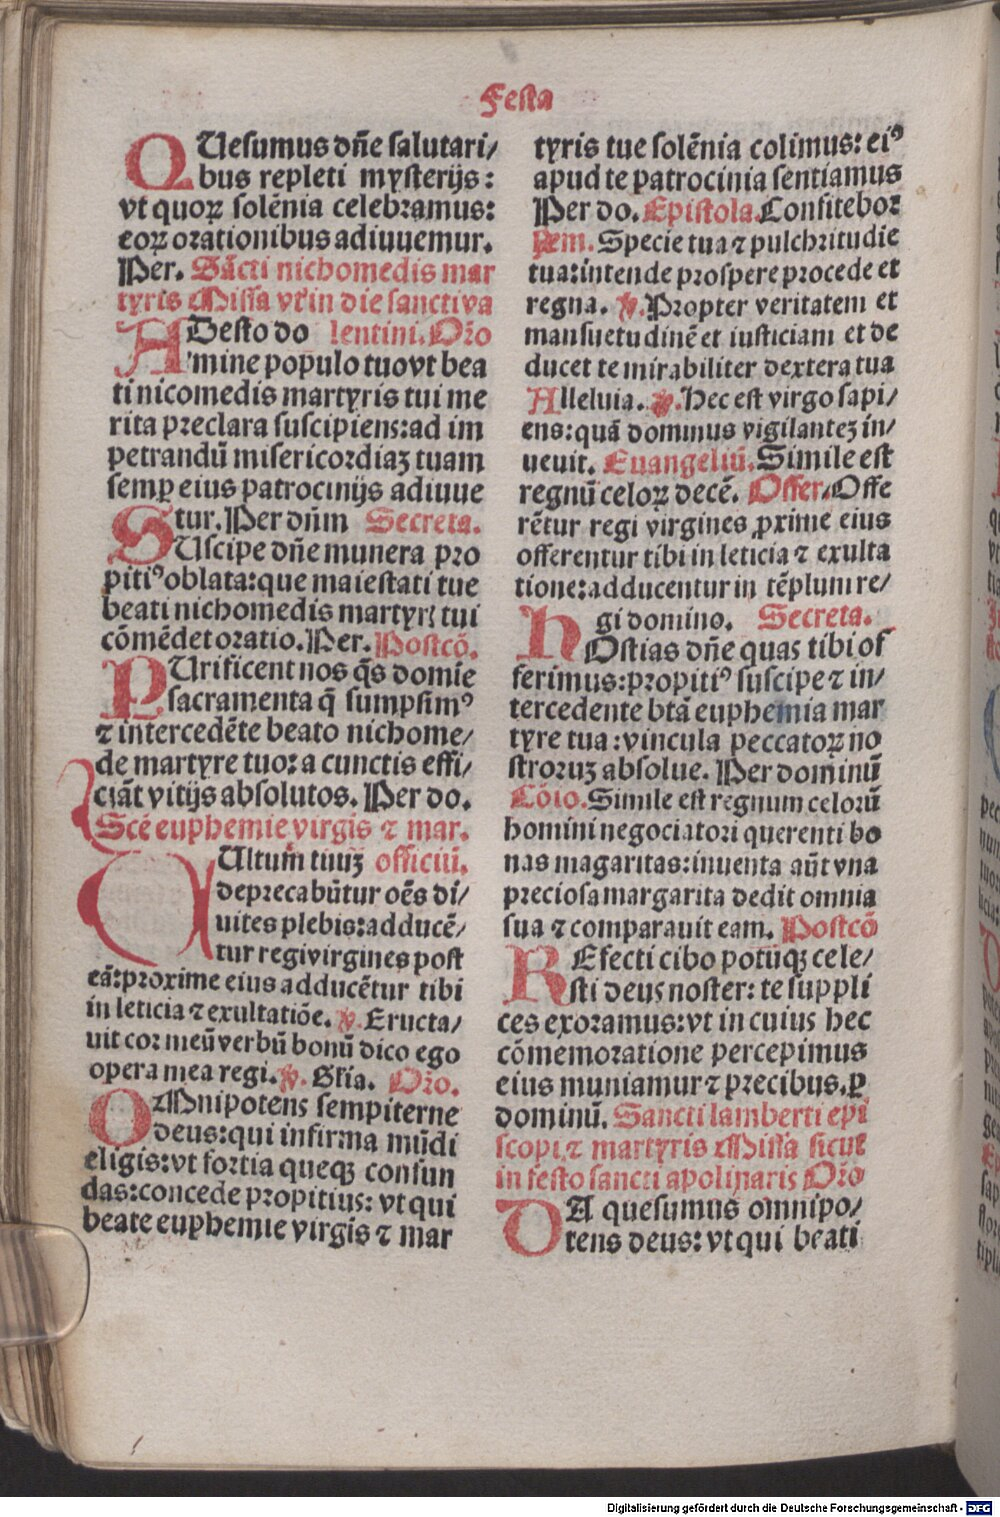 Festa
QUesumus dn̄e salutari/
bus repleti mysterijs:
vt quoꝝ solēnia celebramus:
eoꝝ orationibus adiuuemur.
Per. Sācti nichomedis mar
tyris Missa vt in die sancti va
ADesto do lentini. Oro̅
mine populo tuo vt bea
ti nicomedis martyris tui me
rita preclara suscipiens: ad im
petrandū misericordiaꝫ tuam
semꝑ eius patrocinijs adiuue
tur. Per dn̄m Secreta.
SUscipe dn̄e munera pro
pitiꝰ oblata: que maiestati tue
beati nichomedis martyrꝭ tui
cōmēdet oratio. Per. Postcō.
PUrificent nos q̄s domie
sacramenta q̄ sumpsimꝰ
⁊ intercedēte beato nichome/
de martyre tuo: a cunctis effi/
ciāt vitijs absolutos. Per do.
Scē euphemie virgis ⁊ mar.
VUltum tuuꝫ officiū.
deprecabūtur oēs di/
uites plebis: adducē/
tur regi virgines post
eā: proxime eius adducētur tibi
in leticia ⁊ exultatiōe. ℣. Eructa/
uit cor meū verbū bonū dico ego
opera mea regi. ℣. Gl̄ia. Oro̅.
OMnipotens sempiterne
deus: qui infirma mūdi
eligis: vt fortia queqꝫ confun
das: concede propitius: vt qui
beate euphemie virgis ⁊ mar
tyris tue solēnia colimus: eiꝰ
apud te patrocinia sentiamus
Per do. Epistola. Confitebor
Specie tua ⁊ pulchritudie
tua: intende prospere procede et
regna. ℣. Propter veritatem et
mansuetudinē et iusticiam et de
ducet te mirabiliter dextera tua
Alleluia. ℣. Hec est virgo sapi/
ens: quā dominus vigilanteꝫ in/
uenit. Euangeliū. Simile est
regnū celoꝝ decē. Offer. Offe
rētur regi virgines ꝓxime eius
offerentur tibi in leticia ⁊ exulta
tione: adducentur in tēplum re/
gi domino. Secreta.
HOstias dn̄e quas tibi of
ferimus: propitiꝰ suscipe ⁊ in/
tercedente btā euphemia mar
tyre tua: vincula peccatoꝝ no
stroruꝫ absolue. Per dominū
Cōio. Simile est regnum celorū
homini negociatori querenti bo
nas magaritas: inuenta aūt vna
preciosa margarita dedit omnia
sua ⁊ comparauit eam. Postcō
REfecti cibo potūqꝫ cele/
sti deus noster: te suppli
ces exoramus: vt in cuius hec
cōmemoratione percepimus
eius muniamur ⁊ precibus. ꝑ
dominū. Sancti lamberti epi
scopi ⁊ martyris Missa sicut
in festo sancti apolinaris Oro̅
DA quesumus omnipo/
tens deus: vt qui beati
Digitalisierung gefördert durch die Deutsche Forschungsgemeinschaft - DFG